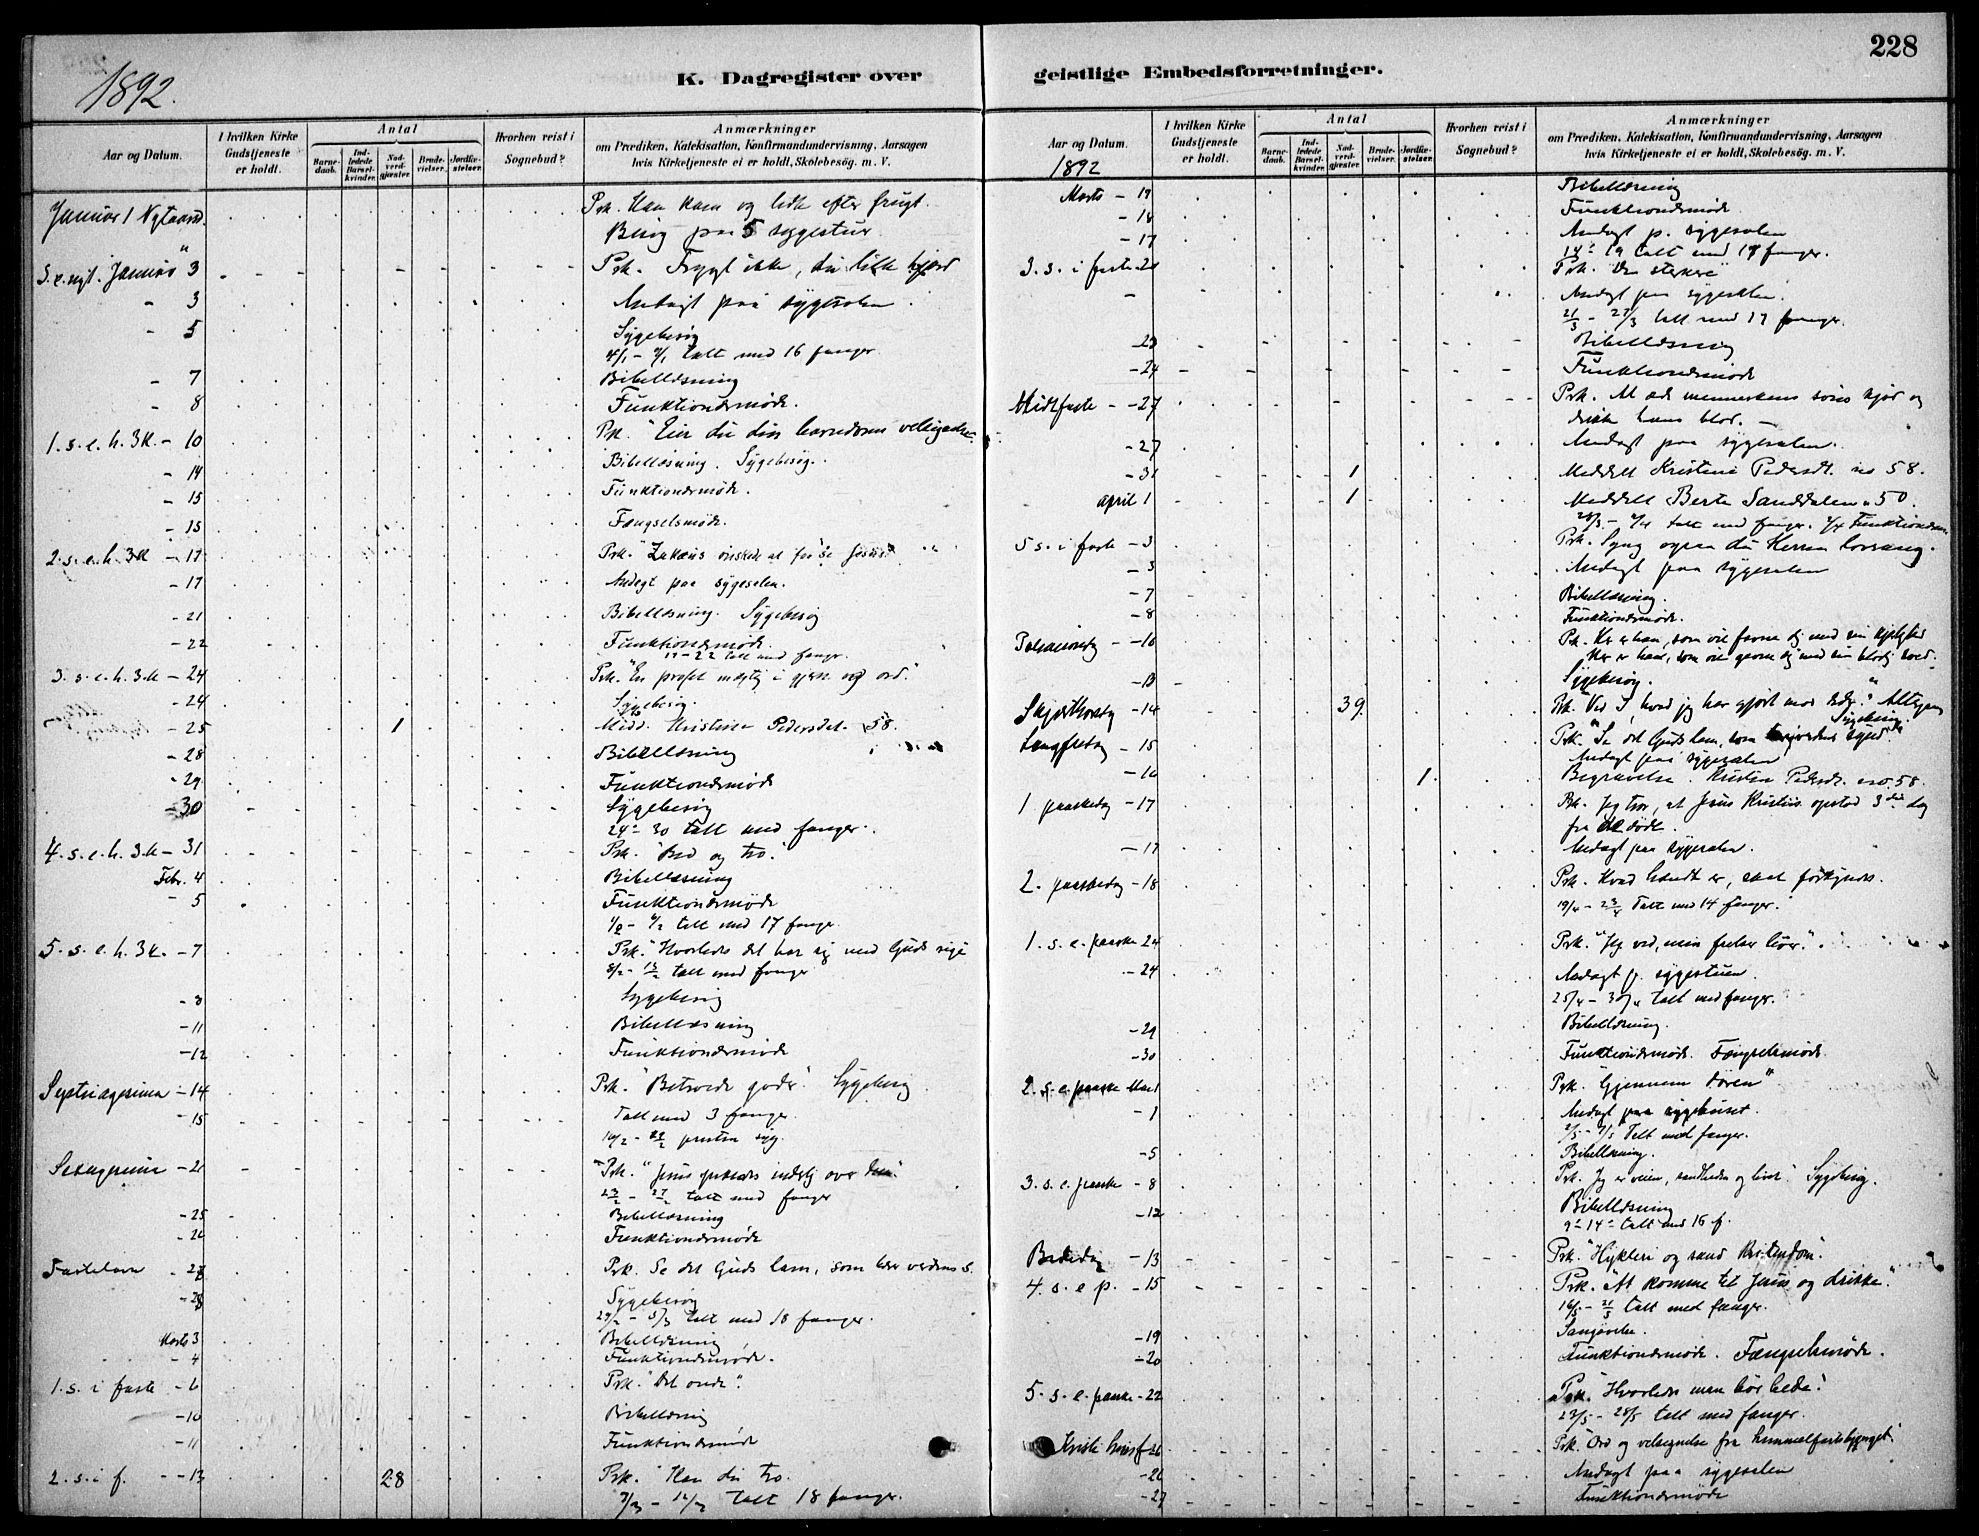 228
1892.
K. Dagregister over
geistlige Embedsforretninger.
Aar og Datum.
I hvilken Kirke
Gudstjeneste
er holdt.
Antal
Barne-
daab.
Ind-
ledede
Barsel-
kvinder.
Nad-
verd-
gjæster.
Brude-
vielser.
Jordfæ-
stelser.
Hvorhen reist i
Sognebud?
Anmærkninger
om Prædiken, Katekisation, Konfirmandundervisning, Aarsagen
hvis Kirketjeneste ei er holdt, Skolebesög. m. V.
Januar 1 Nytaarsd. Prk. Han kom og ledte efter frugt.
Besøg paa 5 sygestur
S. e. nyt. Januar 3 Prk. Frygt ikke, du lille hjord
- 3 Andagt paa sygesalen
- 5 Sygebesøg
4/1 - 9/1 talt med 16 fanger
- 7 Bibellæsning
- 8 Funktionærmøde.
1. s. e. h. 3 K. - 10 Prk. "Eier du din barndoms velsignelse
- 14 Bibellæsning. Sygebesøg.
- 15 Funktionærmøde.
- 15 Fængselsmøde.
2. s. e. h. 3 K - 17 Prk. "Zakæus ønskede at faa se Jesus"
- 17 Andagt paa sygesalen.
- 21 Bibellæsning. Sygebesøg
- 22 Funktionærmøde.
17 - 22 talt med fanger.
3. s. e. h. 3 K - 24 Prk. "En profet mægtig i gjern. og ord."
- 24 Sygebesøg.
- 25 1 Medd. Kristine Pedersdat. 58.
- 28 Bibellæsning
- 29 Funktionærmøde
- 30 Sygebesøg
24 - 30 talt med fanger.
4. s. e. h. 3 K - 31 Prk. "Bed og tro."
Febr. 4 Bibellæsning
- 5 Funktionærmøde
1/2 - 6/2 talt med 17 fanger
5. s. e. h. 3 K. - 7 Prk. "Hvorledes det har sig med Guds rige
8/2 - 13/2 talt med fanger
- 8 Sygebesøg
- 11 Bibellæsning
- 12 Funktionærmøde
Septuagesima - 14 Prk. "Betroede goder" Sygebesøg
- 15 Talt med 3 fanger.
16/2 - 22/2 presten syg.
Sexagesima - 21 Prk. "Jesus ynkedes inderlig over dem"
23/2 - 27/2 talt med fanger
- 25 Bibellæsning
- 26 Funktionærmøde
Fastelavn - 28 Prk. Se det Guds lam, som bær verdens s.
- 28 Sygebesøg
29/2 - 5/3 talt med 18 fanger.
Marts 3 Bibellæsning
- 4 Funktionærmøde.
1. s. i faste - 6 Prk. "Det onde".
- 10 Bibellæsning
- 11 Funktionærmøde
2. s. i f. - 13 28 Prk. "Han din tro.
7/3 - 12/3 talt 18 fanger.
Aar og Datum.
1892
I hvilken Kirke
Gudstjeneste
er holdt.
Antal
Barne-
daab.
Ind-
ledede
Barsel-
kvinder.
Nad-
verd-
gjæster.
Brude-
vielser.
Jordfæ-
stelser.
Hvorhen reist i
Sognebud?
Anmærkninger
om Prædiken, Katekisation, Konfirmandundervisning, Aarsagen
hvis Kirketjeneste ei er holdt, Skolebesög. m. V.
Marts - 17 Bibellæsning
- 18 Funktionærmøde
- 17 Andagt p. sygesalen
14 - 19 talt med 18 fanger.
3. s. i faste - 20 Prk. "Den sterkere"
- Andagt paa sygesalen.
21/3 - 27/3 talt med 17 fanger.
- 23 Bibellæsning
- 24 Funktionærmøde
Midtfaste - 27 Prk. At æde menneskens søns kjød og
drikke hans blod.
- 27 Andagt paa sygesalen.
- 31 1 Meddelt Kristine Pedersdt. no 58.
april 1 1 Meddelt Berte Sanddalen " 50.
28/3 - 2/4 talt med fanger. 2/4 Funktionærm
5 s. i faste - 3 Prk. Syng ogsaa du Herren lovsang.
- 3 Andagt paa sygesalen
- 7 Bibellæsning.
- 8 Funktionærmøde.
Palmesøndag - 10 Prk. Her er han, som vil favne dig med sin kjærlighed
Her er han, som vil gavne dig med sin blodig sved.
- 13 Sygebesøg.
Skjærthorsdag - 14 39 Prk. "Ved I, hvad jeg har gjort mod eder? Altergang
Sygebesøg.
Langfredag - 15 Prk. "Se det Guds lam, som verdens synd
Andagt paa sygesalen
- 16 1 Begravelse. Kristine Pedersdt. no. 58.
1 paaskedag - 17 Prk. Jeg tror, at Jesus Kristus opstod 3die dag
fra de døde.
- 17 Andagt paa sygesalen.
2. paaskedag - 18 Prk. Hvad hændt er, skal forkyndes.
19/4 - 23/4 Talt med 14 fanger.
1. s. e. paaske 24 Prk. "Jeg ved, min frelser lever".
- 24 Andagt p. sygestuen.
25/4 - 30/4 talt med fanger.
- 29 Bibellæsning.
- 30 Funktionærmøde. Fængselsmøde.
2. s. e. paaske Mai 1 Prk. "Gjennem døren"
- 1 Andagt paa sygehuset.
2/5 - 7/5 Talt med fanger.
- 5 Bibellæsning.
3. s. e. paaske - 8 Prk. Jeg er veien, sandheden og livet. Sygebesøg.
- 12 Bibellæsning
9 - 14 talt med 16 f.
Bededag - 13 Prk. "Hykleri og sand kristendom".
4. s. e p. - 15 Prk. "At komme til Jesus og drikke."
16/5 - 21/5 talt med fanger.
- 19 Sangøvelse.
- 20 Funktionærmøde. Fængselsmøde.
5. s. e. paaske - 22 Prk. "Hvorledes man bør bede."
23/5 - 28/5 talt med fanger.
Kristi himf. 26 Prk. "Ord og velsignelse fra himmelfartsbjerget."
- 26 Andagt paa sygesalen
- 27 Funktionærmøde